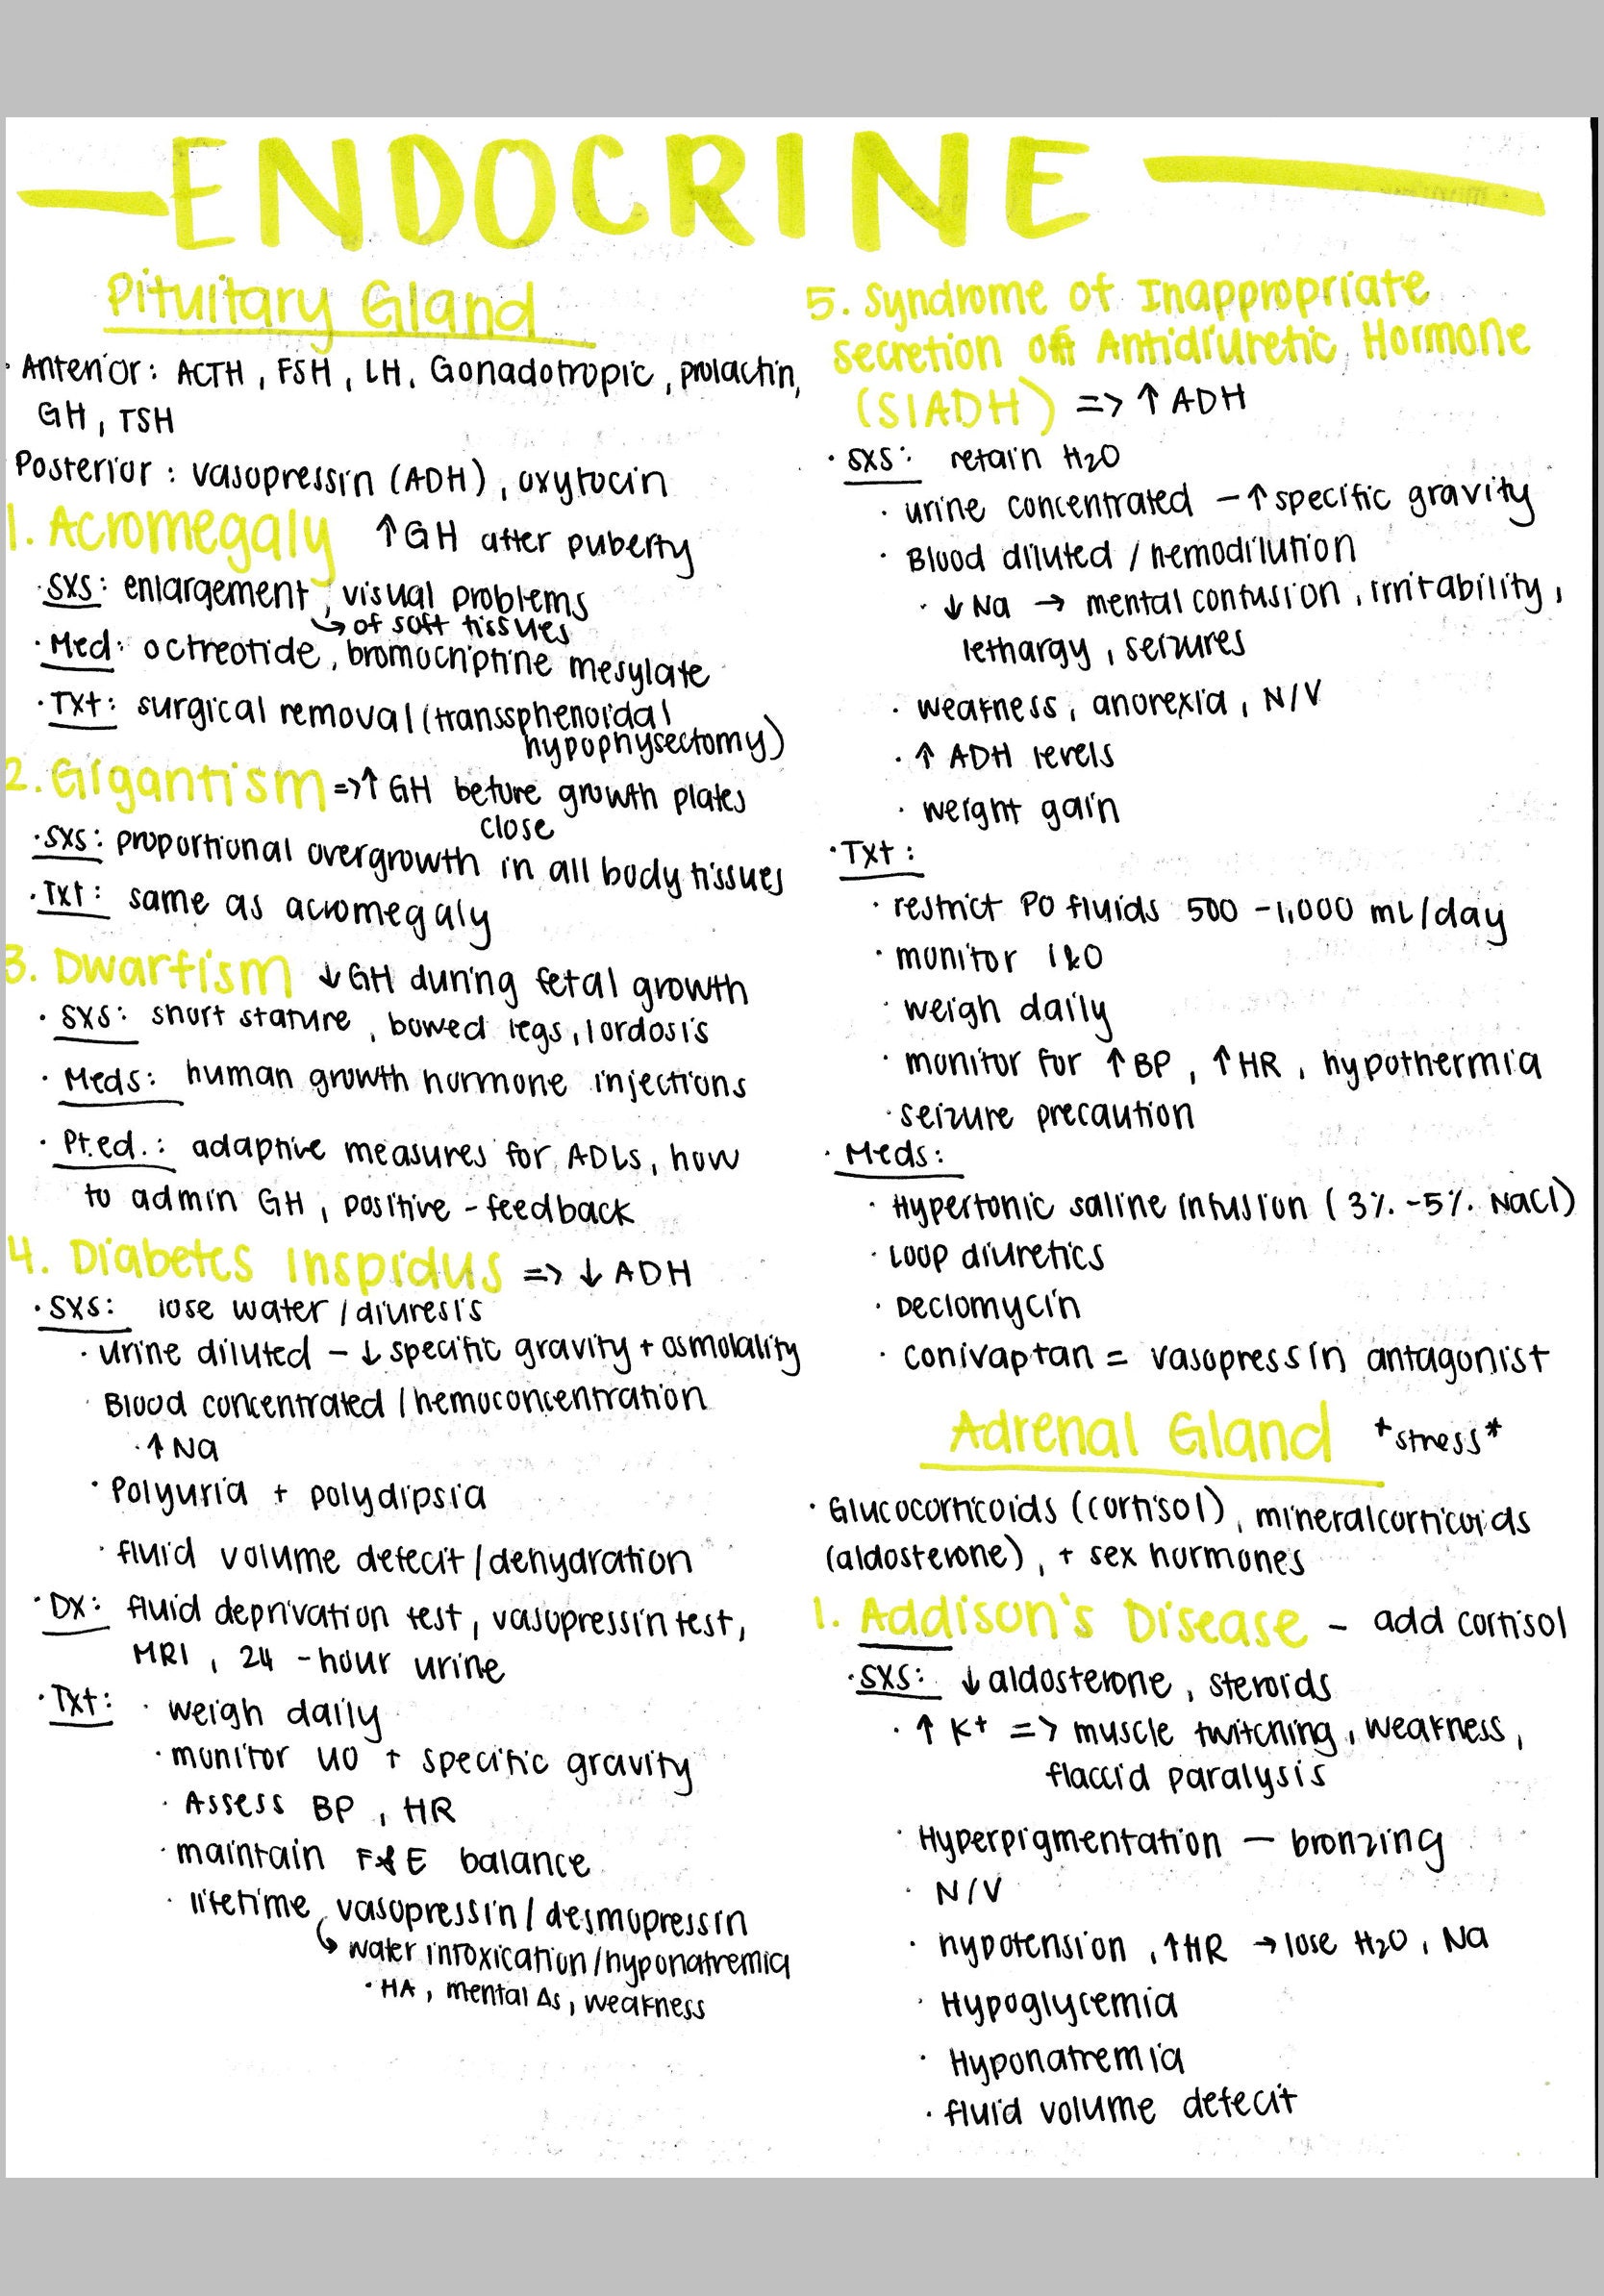 ENDOCRINE
Pituitary Gland
· Anterior: ACTH, FSH, LH, Gonadotropic, prolactin,
GH, TSH
Posterior: vasopressin (ADH), oxytocin
1. Acromegaly ↑GH after puberty
· SXS: enlargement, visual problems
↳ of soft tissues
· Med: octreotide, bromocriptine mesylate
· Txt: surgical removal (transsphenoidal
hypophysectomy)
2. Gigantism => ↑ GH before growth plates
close
· SXS: proportional overgrowth in all body tissues
· Txt: same as acromegaly
3. Dwarfism ↓GH during fetal growth
· SXS: short stature, bowed legs, lordosis
· Meds: human growth hormone injections
· Pt.ed.: adaptive measures for ADLs, how
to admin GH, positive-feedback
4. Diabetes Inspidus => ↓ ADH
· SXS: lose water/diuresis
· urine diluted - ↓ specific gravity + osmolality
Blood concentrated/hemoconcentration
· ↑ Na
· Polyuria + polydipsia
· fluid volume defecit/dehydration
· DX: fluid deprivation test, vasopressin test,
MRI, 24-hour urine
· Txt: · weigh daily
· monitor UO + specific gravity
· Assess BP, HR
· maintain F&E balance
· lifetime vasopressin/desmopressin
↳ water intoxication/hyponatremia
· HA, mental Δs, weakness
5. Syndrome of Inappropriate
secretion of Antidiuretic Hormone
(SIADH) => ↑ ADH
· SXS: retain H2O
· urine concentrated - ↑ specific gravity
· Blood diluted/hemodilution
· ↓ Na → mental confusion, irritability,
lethargy, seizures
· weakness, anorexia, N/V
· ↑ ADH levels
· weight gain
· Txt:
· restrict PO fluids 500-1,000 mL/day
· monitor I&O
· weigh daily
· monitor for ↑ BP, ↑ HR, hypothermia
· seizure precaution
· Meds:
· Hypertonic saline infusion (3%-5% NaCl)
· Loop diuretics
· Declomycin
· conivaptan = vasopressin antagonist
Adrenal Gland *stress*
· Glucocorticoids (cortisol), mineralcorticoids
(aldosterone), + sex hormones
1. Addison's Disease - add cortisol
· SXS: ↓ aldosterone, steroids
· ↑ K+ => muscle twitching, weakness,
flaccid paralysis
· Hyperpigmentation - bronzing
· N/V
· hypotension, ↑HR → lose H2O, Na
· Hypoglycemia
· Hyponatremia
· fluid volume defecit